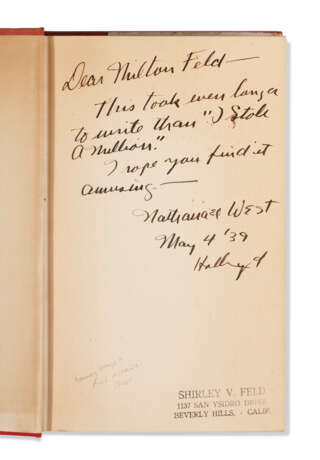 Dear Milton Feld—
This took even longer
to write than "I Stole
A Million."
I hope you find it
amusing—
Nathanael West
May 4 '39
Hollywd
SHIRLEY V. FELD
1137 SAN YSIDRO DRIVE
BEVERLY HILLS, - CALIF.